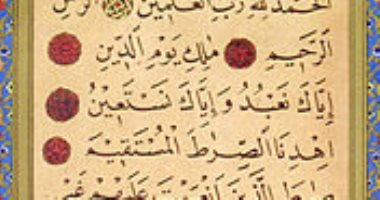 الْحَمْدُ لِلّٰهِ رَبِّ الْعَالَمِينَ الرَّحْمٰنِ
الرَّحِيمِ مَلِكِ يَوْمِ الدِّينِ
إِيَّاكَ نَعْبُدُ وَإِيَّاكَ نَسْتَعِينُ
اِهْدِنَا الصِّرَاطَ الْمُسْتَقِيمَ
صِرَاطَ الَّذِينَ أَنْعَمْتَ عَلَيْهِمْ غَيْرِ